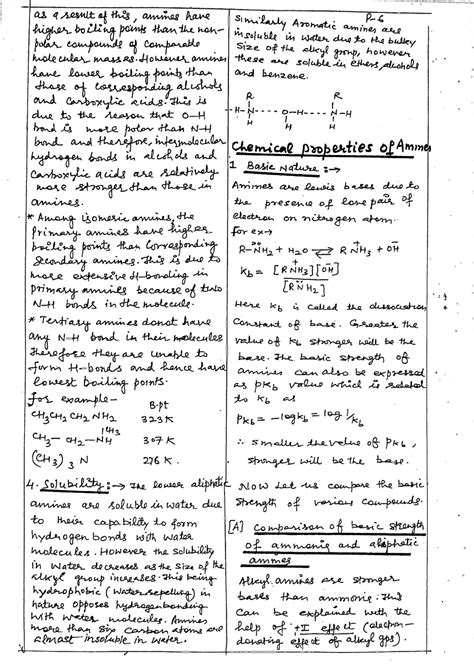 as a result of this, amines have
higher boiling points than the non-
polar compounds of comparable
molecular masses. However amines
have lower boiling points than
those of corresponding alcohols
and carboxylic acids. This is
due to the reason that O-H
bond is more polar than N-H
bond and therefore, intermolecular
hydrogen bonds in alcohols and
Carboxylic acids are relatively
more stronger than those in
amines.
* Among isomeric amines, the
primary amines have higher
boiling points than corresponding
secondary amines. This is due to
more extensive H-bonding in
primary amines because of two
N-H bonds in the molecule.
* Tertiary amines do not have
any N-H bond in their molecules
therefore they are unable to
form H-bonds and hence have
lowest boiling points.
for example- B.pt
CH3CH2CH2NH2 323K
CH3-CH2-NHCH3 307K
(CH3)3N 276K.
4. Solubility:→ The lower aliphatic
amines are soluble in water due
to their capability to form
hydrogen bonds with water
molecules. However the solubility
in water decreases as the size of the
alkyl group increases. This being
hydrophobic (water repelling) in
nature opposes hydrogen bonding
with water molecules. Amines
more than six carbon atoms are
almost insoluble in water.
P-6
Similarly Aromatic amines are
insoluble in water due to the bulky
size of the alkyl group, however
these are soluble in ethers, alcohols
and benzene.
R R
-H-N----O-H----N-H
H H H
Chemical properties of Amines
1 Basic Nature:→
Amines are lewis bases due to
the presence of lone pair of
electron on nitrogen atom.
For ex→
R-N̈H2 + H2O ⇌ R N⁺H3 + OH⁻
Kb = [RN⁺H3][OH⁻]
[RN̈H2]
Here Kb is called the dissociation
Constant of base. Greater the
value of Kb stronger will be the
base. The basic strength of
amines can also be expressed
as pKb value which is related
to Kb as
pKb = -log Kb = log 1/Kb
∴ smaller the value of pKb,
stronger will be the base.
Now let us compare the basic
strength of various compounds.
[A] Comparison of basic strength
of ammonia and aliphatic
amines
Alkyl amines are stronger
bases than ammonia. This
can be explained with the
help of +I effect (electron-
donating effect of alkyl gps).